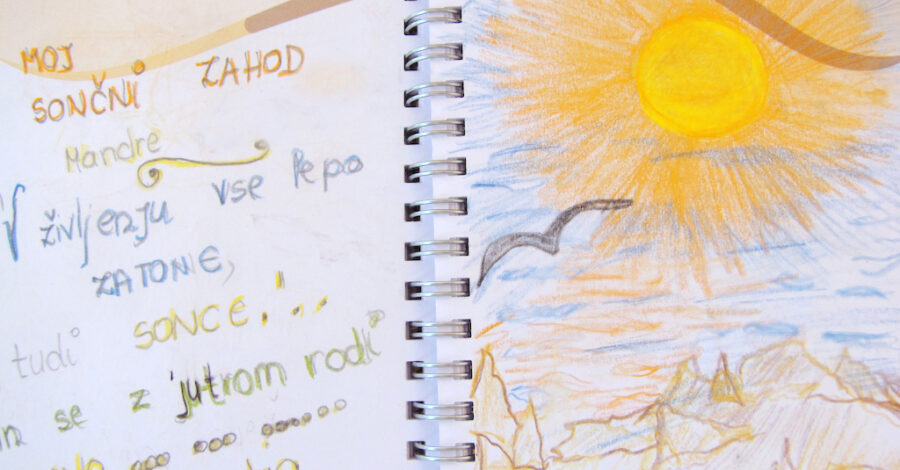 MOJ
SONČNI ZAHOD
Mandre
V življenju vse lepo
ZATONE,
tudi SONCE!...
se z jutrom rodi